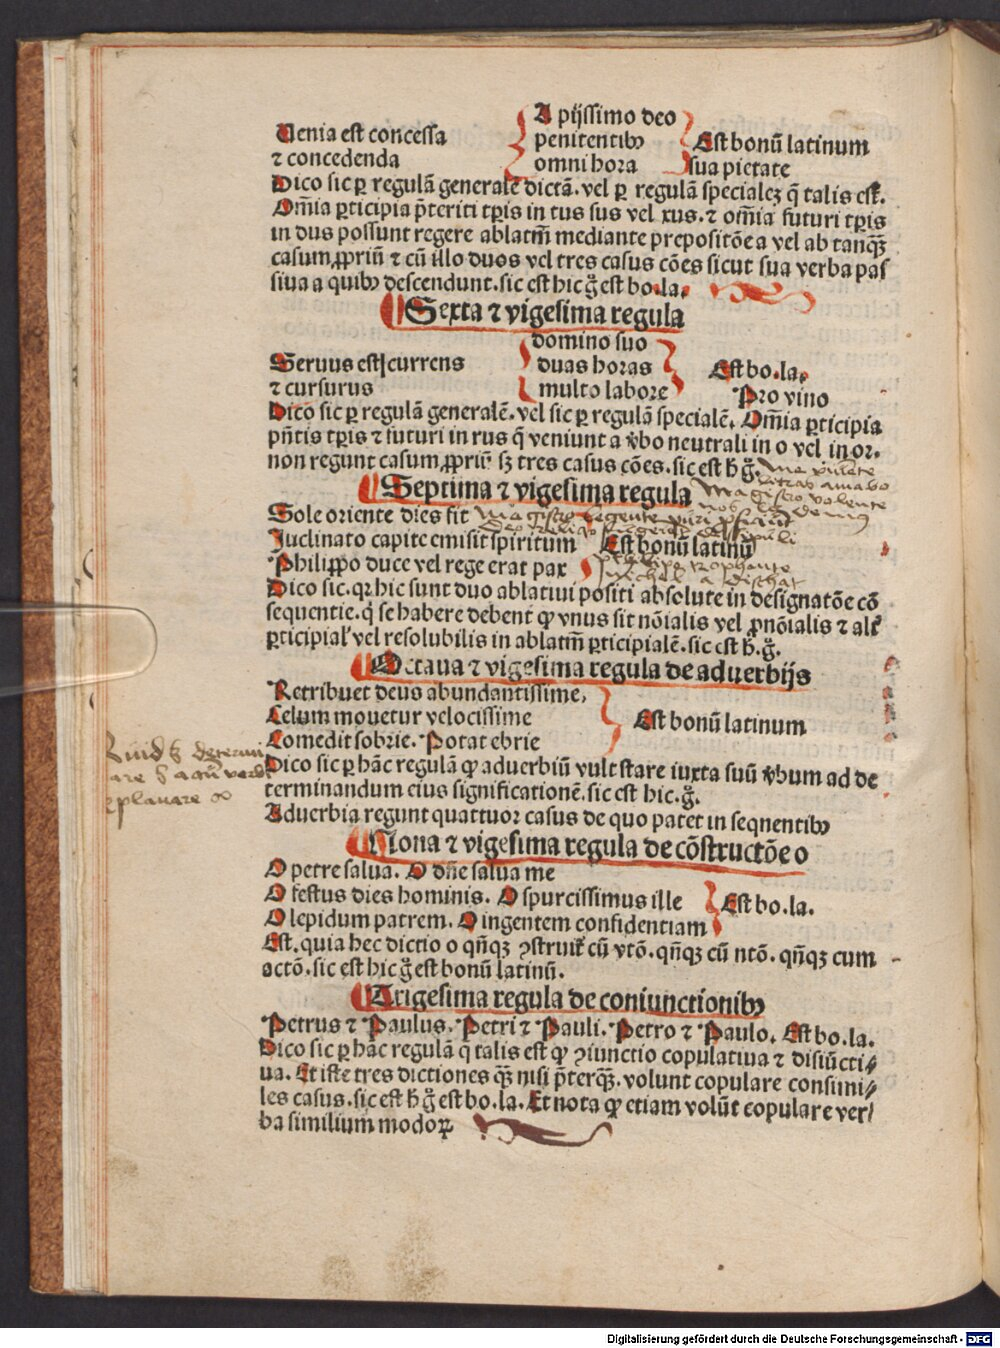 A pijssimo deo
Uenia est concessa penitentibꝰ Est bonū latinum
⁊ concedenda omni hora sua pietate
Dico sic ꝑ regulā generalē dictā. vel ꝑ regulā specialeꝫ q̄ talis est.
Om̄ia ꝑticipia p̄teriti tꝑis in tus sus vel xus. ⁊ om̄ia futuri tꝑis
in dus possunt regere ablatm̄ mediante prepositōe a vel ab tanq̄ꝫ
casum ꝓpriū ⁊ cū illo duos vel tres casus cōes sicut sua verba pas
siua a quibꝰ descendunt. sic est hic g̃ est bo.la.
Sexta ⁊ vigesima regula
domino suo
Seruus est currens duas horas Est bo.la.
⁊ cursurus multo labore Pro vino
Dico sic ꝑ regulā generalē. vel sic ꝑ regulā specialē. Om̄ia ꝑticipia
pn̄tis tꝑis ⁊ futuri in rus q̄ veniunt a v̄bo neutrali in o vel in or.
non regunt casum ꝓpriū sꝫ tres casus cōes. sic est h̄ g̃.
Septima ⁊ vigesima regula
Sole oriente dies fit
Juclinato capite emisit spiritum Est bonū latinū
Philippo duce vel rege erat pax
Dico sic. qꝛ hic sunt duo ablatiui positi absolute in designatōe cō
sequentie. q̇ se habere debent ꝙ vnus sit nōialis vel ꝓnōialis ⁊ alt̓
ꝑticipial̓ vel resolubilis in ablatm̄ ꝑticipialē. sic est h̄. g̃.
Octaua ⁊ vigesima regula de aduerbijs
Retribuet deus abundantissime,
Celum mouetur velocissime Est bonū latinum
Comedit sobrie. Potat ebrie
Dico sic ꝑ hāc regulā ꝙ aduerbiū vult stare iuxta suū v̄bum ad de
terminandum eius significationē. sic est hic. g̃.
Aduerbia regunt quattuor casus de quo patet in seqnentibꝰ
Nona ⁊ vigesima regula de cōstructōe o
O petre salua. O dn̄e salua me
O festus dies hominis. O spurcissimus ille Est bo.la.
O lepidum patrem. O ingentem confidentiam
Est. quia hec dictio o qn̄qꝫ ꝯstruit̓ cū vtō. qn̄qꝫ cū ntō. qn̄qꝫ cum
actō. sic est hic g̃ est bonū latinū.
Trigesima regula de coniunctionibꝰ
Petrus ⁊ Paulus. Petri ⁊ Pauli. Petro ⁊ Paulo. Est bo.la.
Dico sic ꝑ hāc regulā q̄ talis est ꝙ ꝯiunctio copulatiua ⁊ disiūcti⸗
ua. Et iste tres dictiones q̄ꝫ nisi p̄terq̄ꝫ. volunt copulare consimi⸗
les casus. sic est h̄ g̃ est bo.la. Et nota ꝙ etiam volūt copulare ver/
ba similium modoꝝ
Digitalisierung gefördert durch die Deutsche Forschungsgemeinschaft - DFG